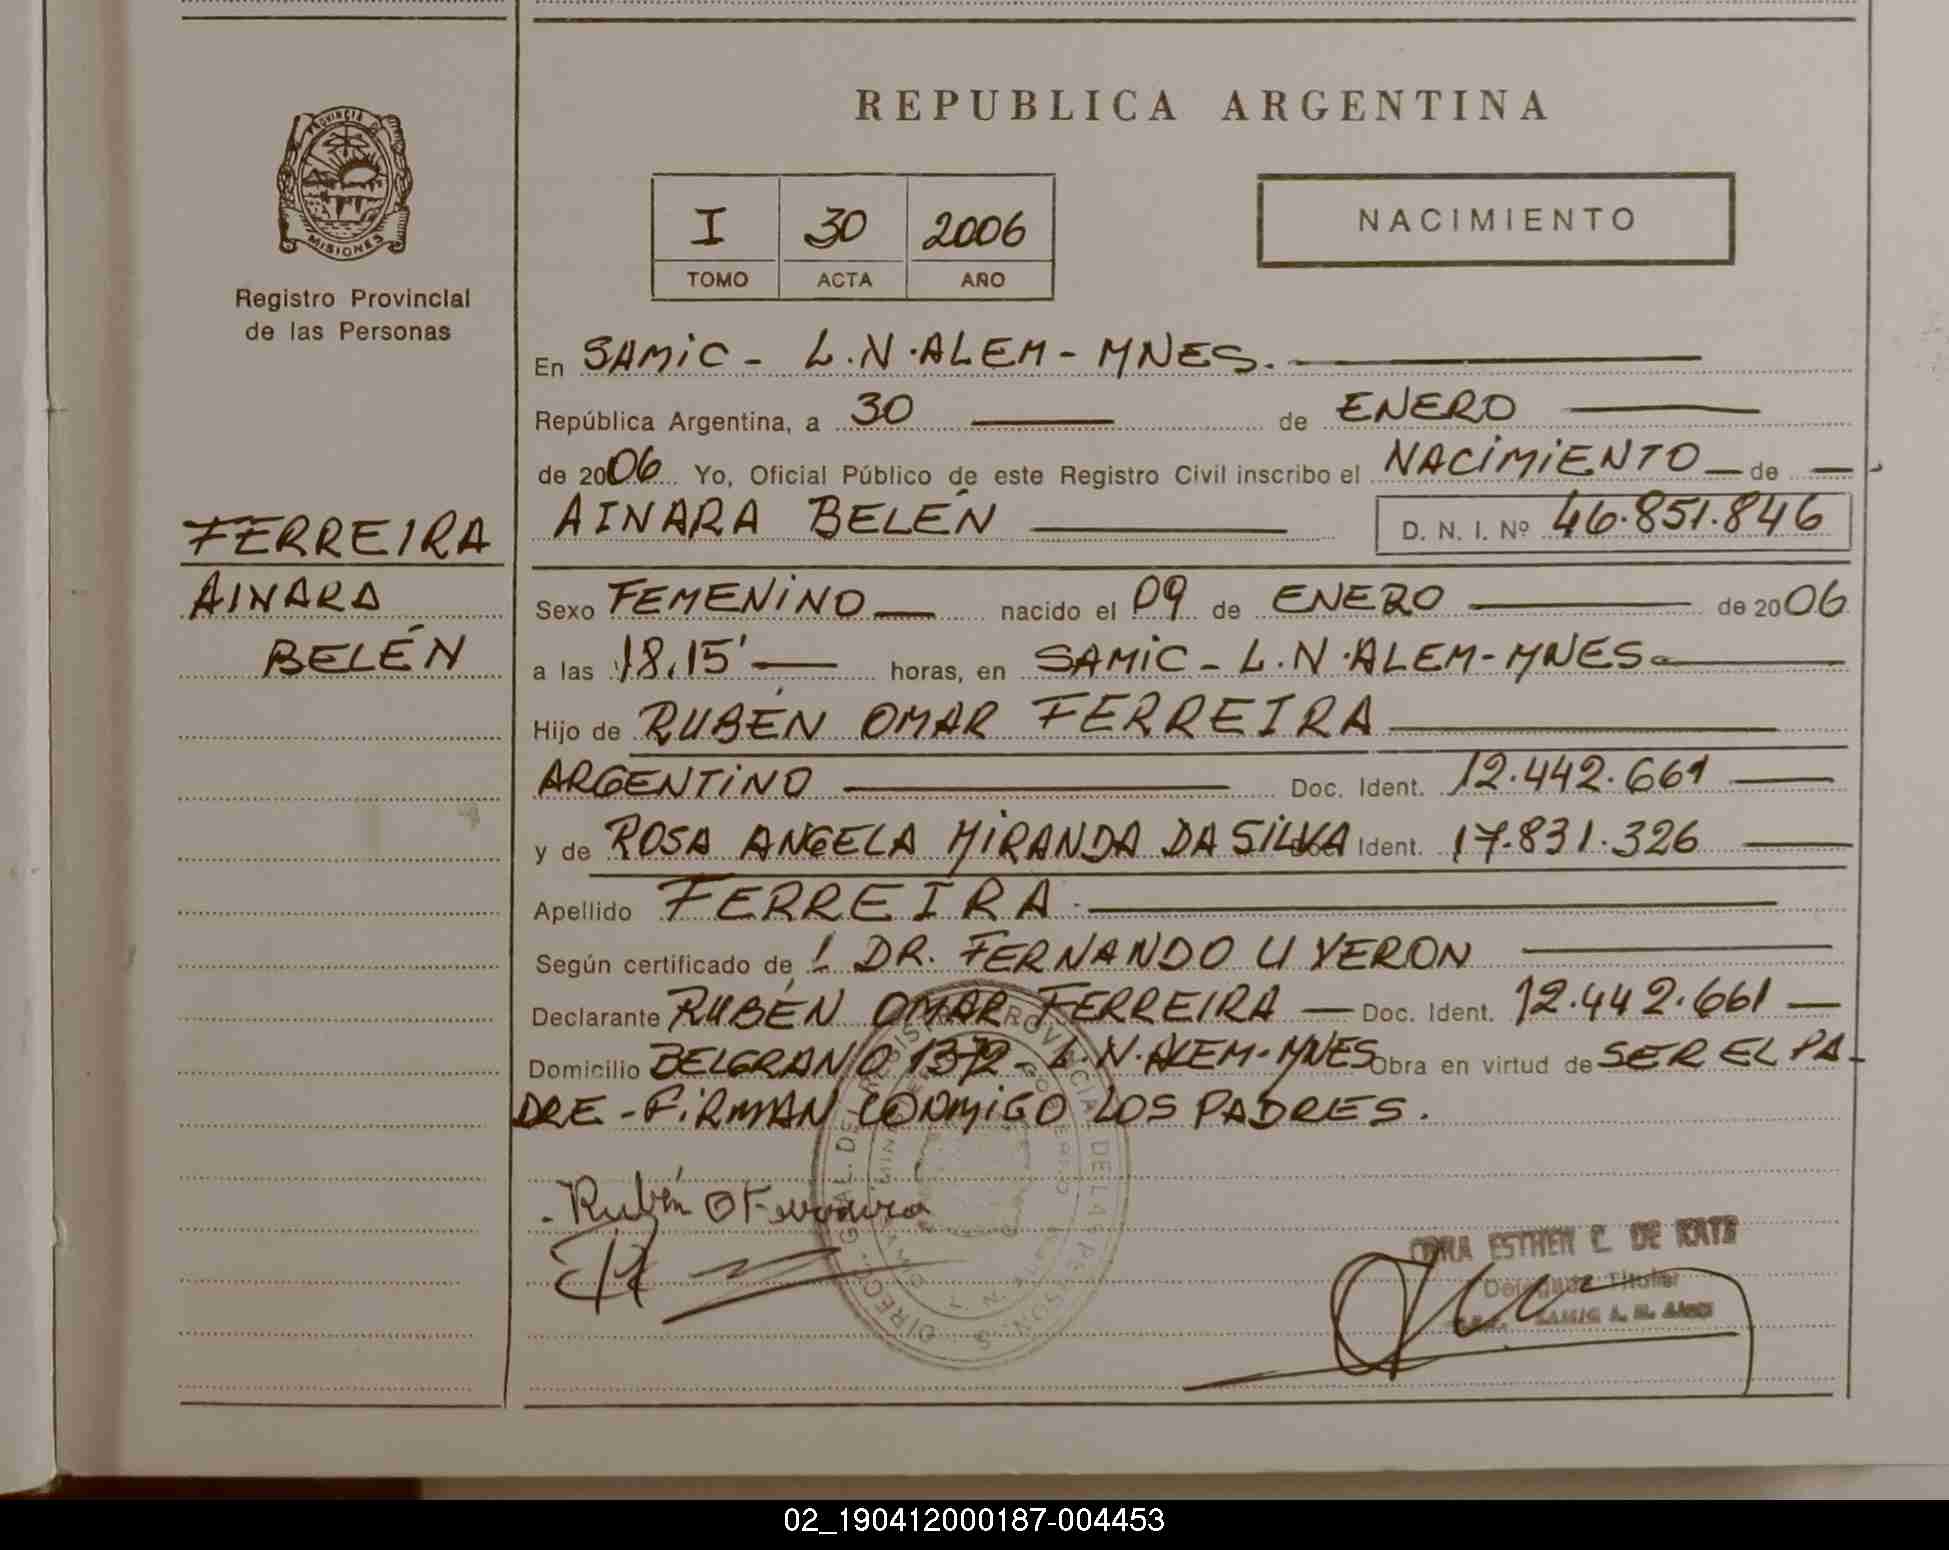 REPUBLICA ARGENTINA
PROVINCIA DE
MISIONES
Registro Provincial
de las Personas
I 30 2006
TOMO ACTA AÑO
NACIMIENTO
En SAMIC - L.N.ALEM - MNES.
República Argentina, a 30 de ENERO
de 2006 Yo, Oficial Público de este Registro Civil inscribo el NACIMIENTO de
AINARA BELÉN D. N. I. Nº 46.851.846
FERREIRA
AINARA
BELÉN
Sexo FEMENINO nacido el 09 de ENERO de 2006
a las 18.15' horas, en SAMIC - L.N.ALEM - MNES
Hijo de RUBÉN OMAR FERREIRA
ARGENTINO Doc. Ident. 12.442.661
y de ROSA ANGELA MIRANDA DA SILVA Doc. Ident. 17.831.326
Apellido FERREIRA
Según certificado de DR. FERNANDO U YERON
Declarante RUBÉN OMAR FERREIRA Doc. Ident. 12.442.661
Domicilio BELGRANO 1372 - L.N.ALEM - MNES Obra en virtud de SER EL PA-
DRE - FIRMAN CONMIGO LOS PADRES.
Rubén O Ferreira
DIREC. GRAL. DEL REGISTRO PROVINCIAL DE LAS PERSONAS
ESTHER C. DE KATZ
Delegada Titular
SAMIC
02_190412000187-004453